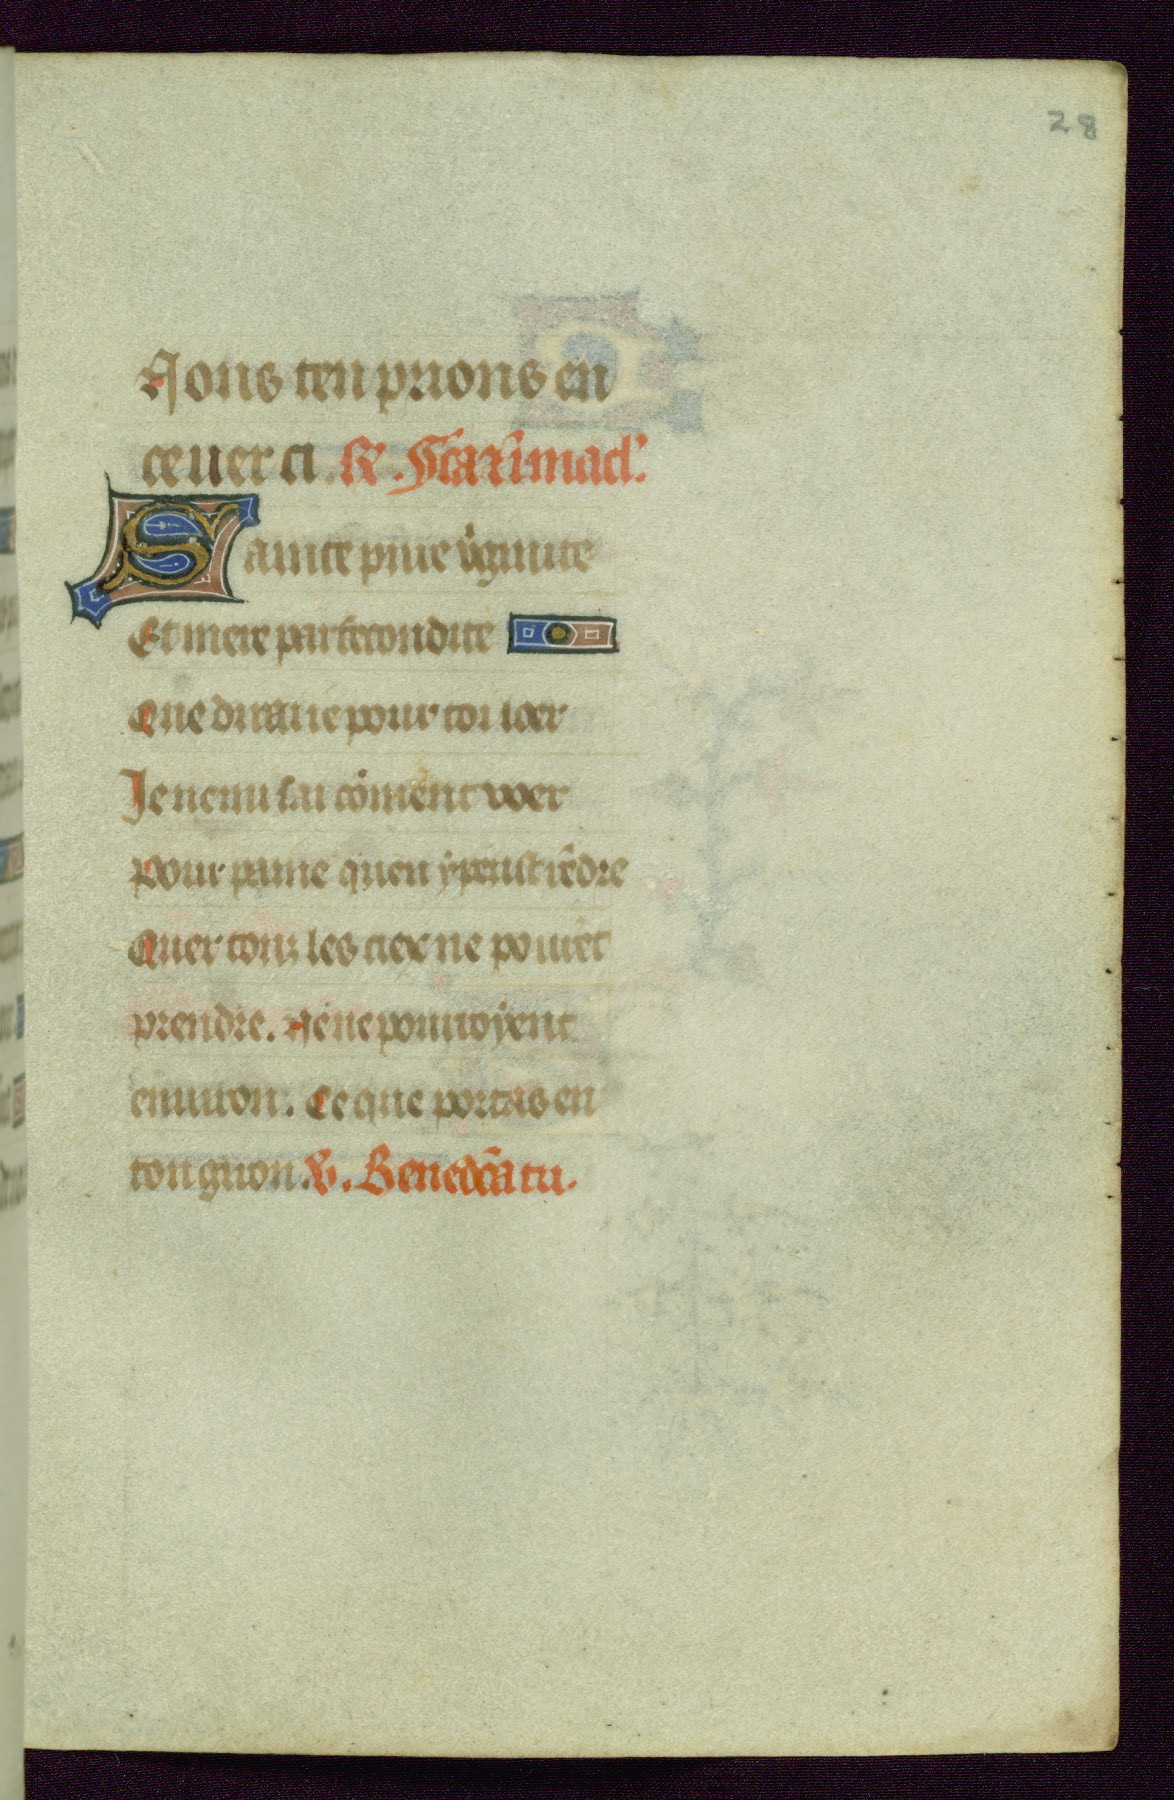 28
Nous ten prions en
ce uer ci. R. Sca et imacl'.
Sainte pure v̾ginite
Et mere par fecondite
Que diraue pour toi loer
Je nenu sai cōment voer
Pour paine quen ẏ peust rēdre
Quer touz les ciex ne pouuēt
prendre. Ne ne pouuoẏent
enuiron. Ce que portas en
ton giron. V. Benedc̄a tu.